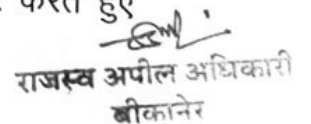 करते हुए
राजस्व अपील अधिकारी
बीकानेर